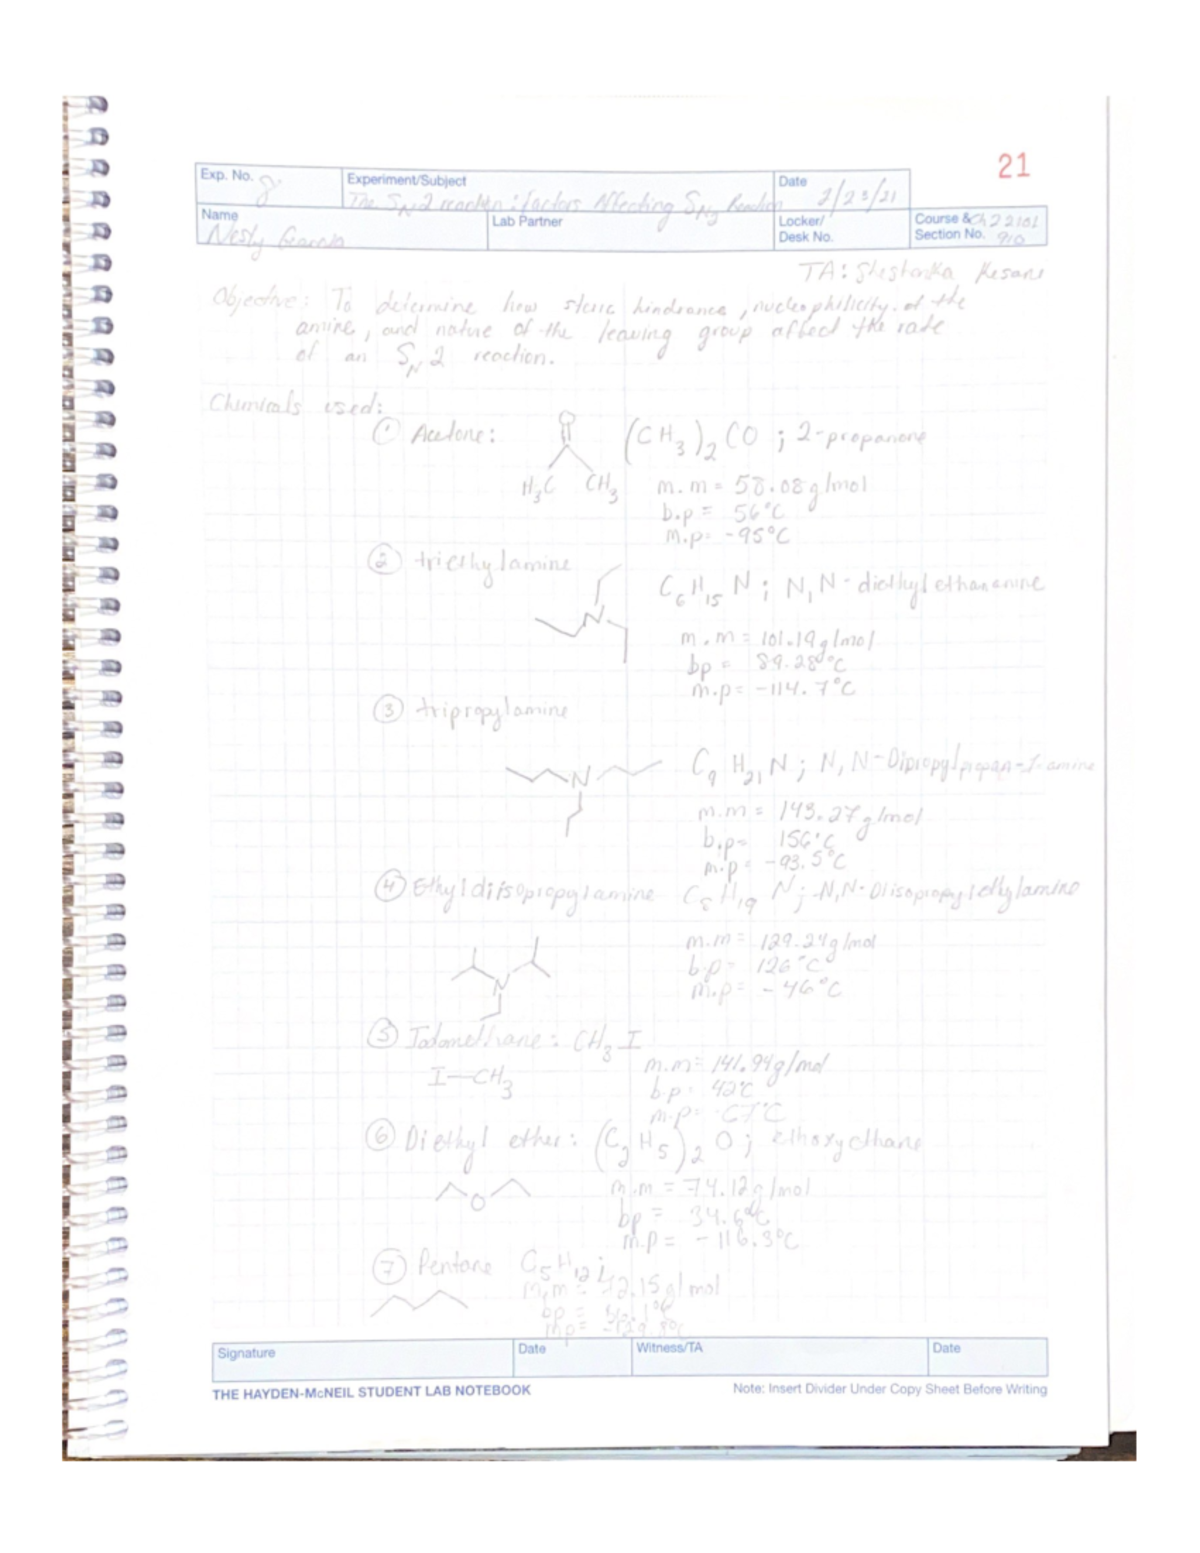 21
Exp. No. 8
Experiment/Subject
The SN2 reaction: factors Affecting SN2 Reaction
Date 2/23/21
Name
Nesly
Lab Partner
Locker/
Desk No.
Course & Ch 22101
Section No. 910
TA: Kesani
Objective: To determine how steric hindrance, nucleophilicity of the
amine, and nature of the leaving group affect the rate
of an SN2 reaction.
Chemicals used:
① Acetone: O (CH3)2 CO ; 2-propanone
H3C CH3 m.m = 58.08 g/mol
b.p = 56°C
m.p = -95°C
② triethylamine
C6 H15 N ; N,N-diethylethanamine
N
m.m = 101.19 g/mol
bp = 89.28°C
m.p = -114.7°C
③ tripropylamine
N C9 H21 N ; N,N-Dipropylpropan-1-amine
m.m = 143.27 g/mol
b.p = 156°C
m.p = -93.5°C
④ Ethyldiisopropylamine C8 H19 N ; N,N-Diisopropylethylamine
m.m = 129.24 g/mol
N b.p = 126°C
m.p = -46°C
⑤ Iodomethane: CH3 I
I—CH3 m.m = 141.94 g/mol
b.p = 42°C
m.p =
⑥ Diethyl ether: (C2 H5)2 O ; ethoxyethane
O m.m = 74.12 g/mol
bp = 34.6°C
m.p = -116.3°C
⑦ Pentane C5 H12 ;
m.m = 72.15 g/mol
bp =
mp =
Signature
Date
Witness/TA
Date
THE HAYDEN-McNEIL STUDENT LAB NOTEBOOK
Note: Insert Divider Under Copy Sheet Before Writing